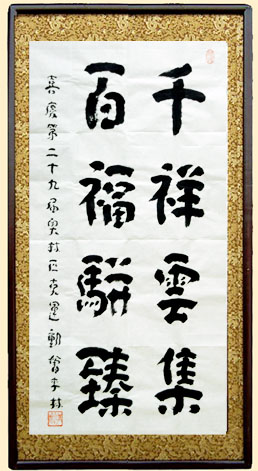 千祥雲集
百福駢臻
喜慶第二十九屆奧林匹克運動會李林